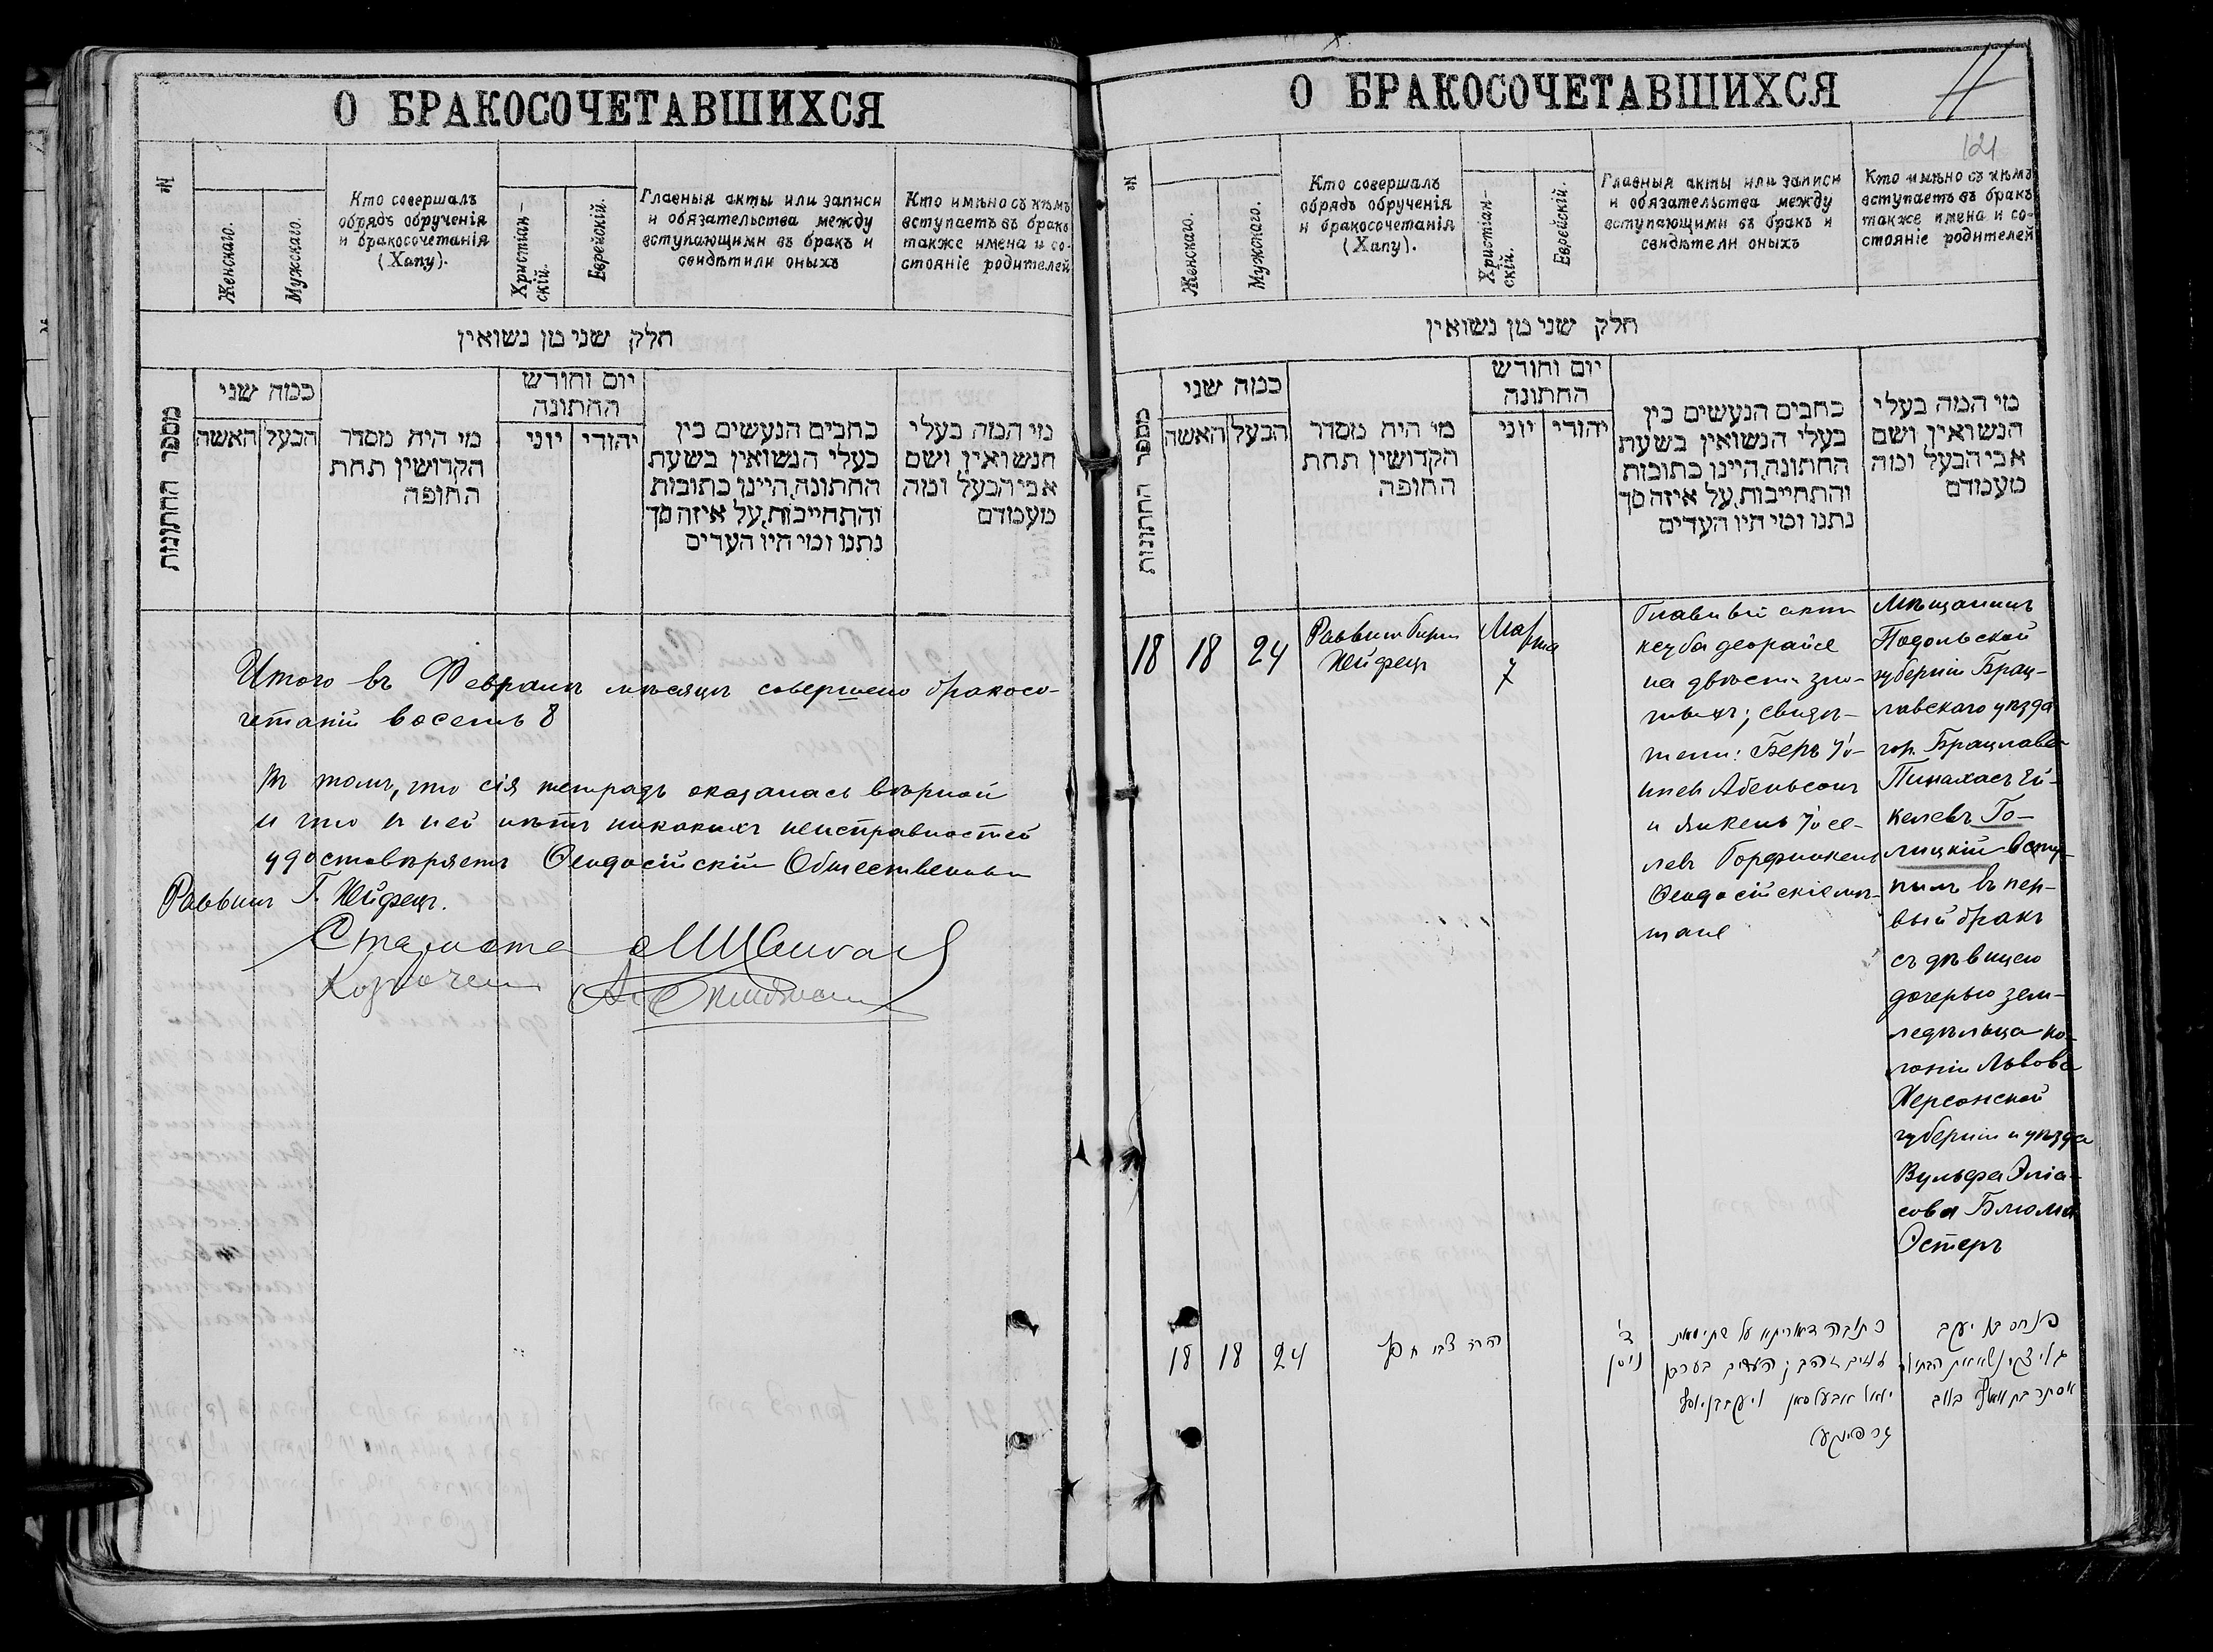 О БРАКОСОЧЕТАВШИХСЯ
№
Женскаго.
Мужскаго.
Кто совершалъ
обрядъ обрученія
и бракосочетанія
(Хупу).
Христіан-
скій.
Еврейскій.
Главныя акты или записи
и обязательства между
вступающими въ бракъ и
свидѣтили оныхъ
Кто имѣно съ кѣмъ
вступаетъ въ бракъ
также имена и со-
стояніе родителей
חלק שני מן נשואין
מספר החתונות
כמה שני
האשה
הבעל
מי היה מסדר
הקדושין תחת
החופה
יום וחודש
החתונה
יוני
יהודי
כתבים הנעשים בין
בעלי הנשואין בשעת
החתונה, היינו כתובות
והתחייבות, על איזה סך
נתנו ומי היו העדים
מי המה בעלי
הנשואין ושם
אבי הבעל ומה
מעמדם
Итого въ Февралѣ мѣсяцѣ совершено бракосо-
четаній восемь 8
Въ томъ, что сія тетрадь оказалась вѣрной
и что въ ней нѣтъ никакихъ неисправностей
удостовѣряетъ Ѳеодосійскій Общественный
Раввинъ Г. Хейфецъ.
Староста
Казначей
О БРАКОСОЧЕТАВШИХСЯ
11
121
№
Женскаго.
Мужскаго.
Кто совершалъ
обрядъ обрученія
и бракосочетанія
(Хупу).
Христіан-
скій.
Еврейскій.
Главныя акты или записи
и обязательства между
вступающими въ бракъ и
свидѣтели оныхъ
Кто имѣно съ кѣмъ
вступаетъ въ бракъ
также имена и со-
стояніе родителей
חלק שני מן נשואין
מספר החתונות
כמה שני
האשה
הבעל
מי היה מסדר
הקדושין תחת
החופה
יום וחודש
החתונה
יוני
יהודי
כתבים הנעשים בין
בעלי הנשואין בשעת
החתונה, היינו כתובות
והתחייבות, על איזה סך
נתנו ומי היו העדים
מי המה בעלי
הנשואין ושם
אבי הבעל ומה
מעמדם
18
18
24
Раввинъ Гиршъ
Хейфецъ
Марта
7
Главный актъ
кесуба деорайсе
на двѣсти зло-
тыхъ; свидѣ-
тели: Беръ Іо-
илев Абельсонъ
и Янкель Іосе-
левъ Горфинкель
Ѳеодосійскіе мѣ-
щане
Мѣщанинъ
Подольской
губерніи Брац-
лавскаго уѣзда
гор. Брацлава
Пинахасъ Ей-
келевъ Го-
лицкій всту-
пилъ въ пер-
вый бракъ
съ дѣвицею
дочерью зем-
ледѣльца ко-
лоніи Львова
Херсонской
губерніи и уѣзда
Вульфа Эліа-
сова Блюма
Эстеръ
18
18
24
הרה צבי חפץ
ד'
ניסן
כתובה דאוריתא על שתי מאות
זהובים; העדים בער בן
יואל אבעלסאן ויעקב בן יוסף
פנחס בן יעקב
גאליצקי נשא את הבתולה
אסתר בת וואלף